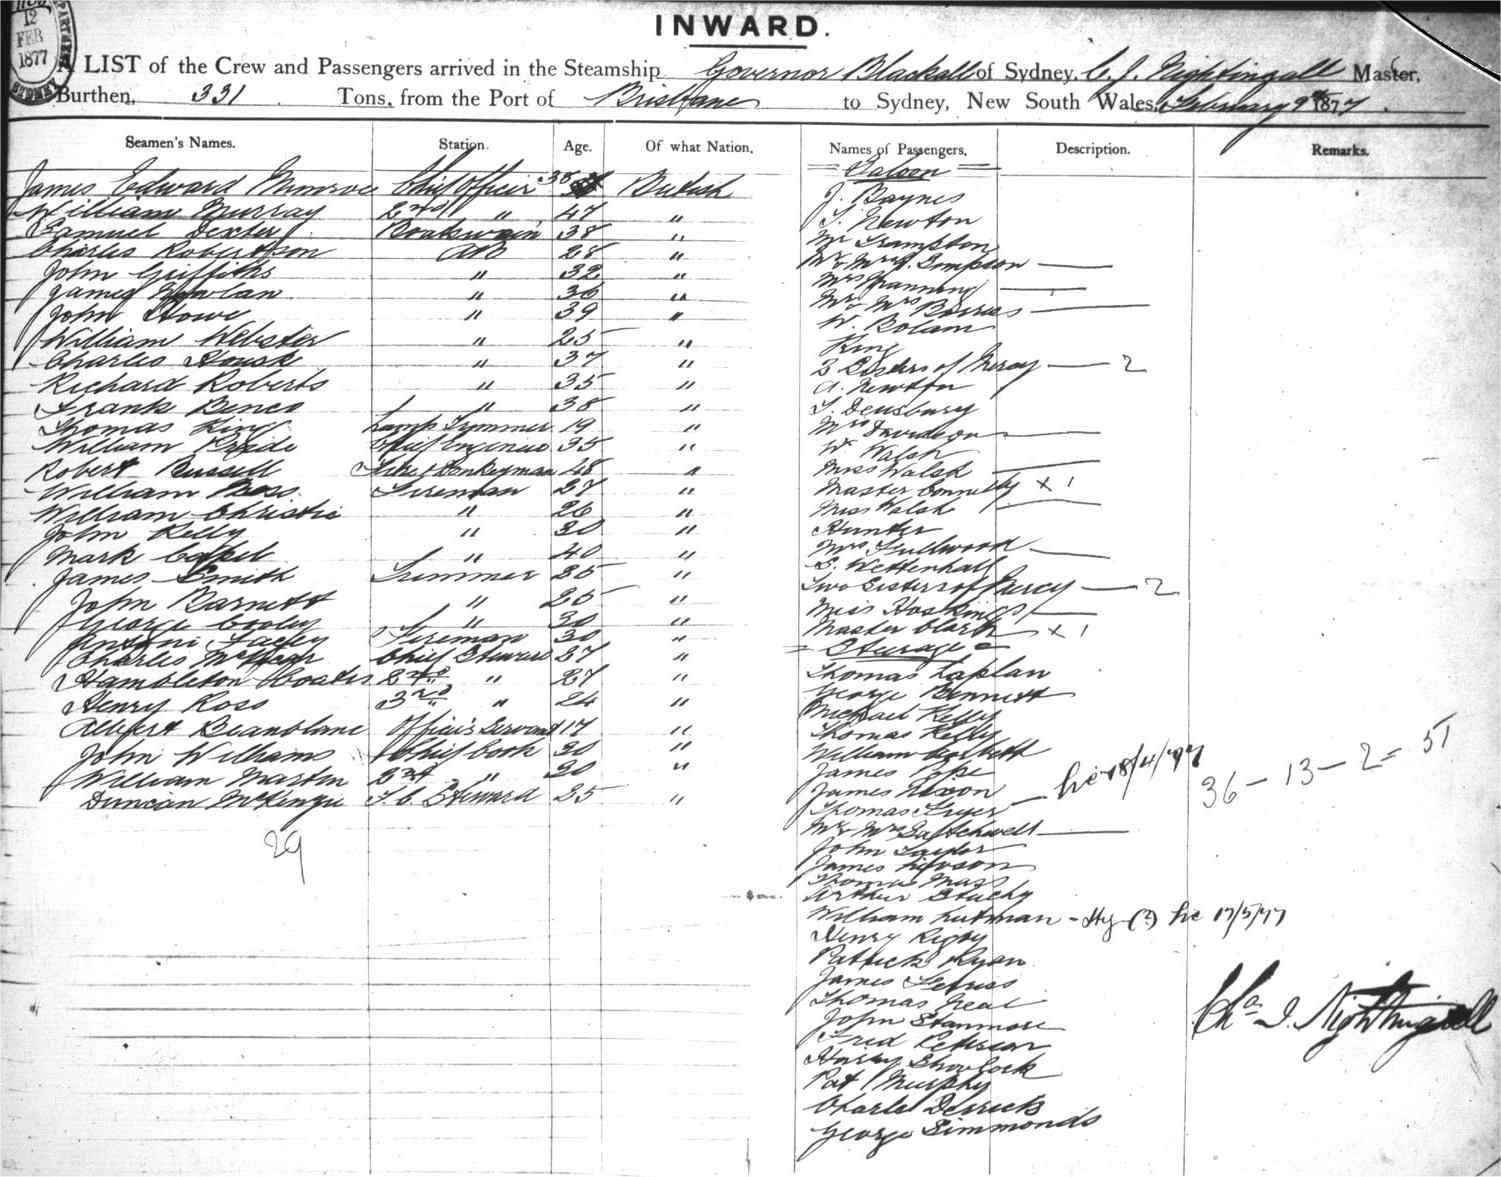 12
FEB
1877
SYDNEY
INWARD.
A LIST of the Crew and Passengers arrived in the Steamship Governor Blackall of Sydney, C. J. Nightingall Master,
Burthen, 331 Tons, from the Port of Brisbane to Sydney, New South Wales, February 9th 1877.
Seamen's Names. Station. Age. Of what Nation. Names of Passengers. Description. Remarks.
James Edward Munroe Chief Officer 38 British
William Murray 2nd " 47 "
Samuel Dexter Boatswain 38 "
Charles Robertson AB 28 "
John Griffiths " 32 "
James Nowlan " 36 "
John Howe " 39 "
William Webster " 25 "
Charles " 37 "
Richard Roberts " 35 "
Frank " 38 "
Thomas King Lamp Trimmer 19 "
William Pryde Chief Engineer 35 "
Robert Russell Donkeyman 48 "
William Ross Fireman 27 "
William Christie " 26 "
John Kelly " 30 "
Mark " 40 "
James Smith Trimmer 35 "
John Barnett " 25 "
George Cooley " 30 "
Fireman 30 "
Charles Chief Steward 37 "
Hambleton Coates 2nd " 27 "
Henry Ross 3rd " 24 "
Albert Officers Servant 17 "
John Williams Chief Cook 30 "
William Martin 2nd " 20 "
Duncan McKenzie F. C. Steward 35 "
29
Saloon
J. Baynes
T. Newton
Mr Frampton
Mr & Mrs Simpson
Mrs Manning
Mr & Mrs
W. Bolam
King
3 Sisters of Mercy 2
A. Newton
T. Deusbury
Mrs Davidson
W. Walsh
Miss Walsh
Master Connelly x 1
Miss Walsh
Hunter
Mrs Fullwood
S. Wettenhall
Two Sisters of Mercy 2
Miss Hoskings
Master Clark x 1
Steerage
Thomas Laplan
George Bennett
Michael Kelly
Thomas Kelly
William Corbett
James Pope
James Nixon
Thomas Fryer hc 18/4/77
36 - 13 - 2 = 51
Mr & Mrs
John Taylor
James Hewson
Thomas Mass
Arthur Stuchy
William Lutman - Hy (?) hc 17/5/77
Henry Rigby
Patrick Ryan
James
Thomas Neal
John Stanmore
Fred Peterson
Harry Shorlock
Pat Murphy
Charles Derrick
George Simmonds
Chas J. Nightingall